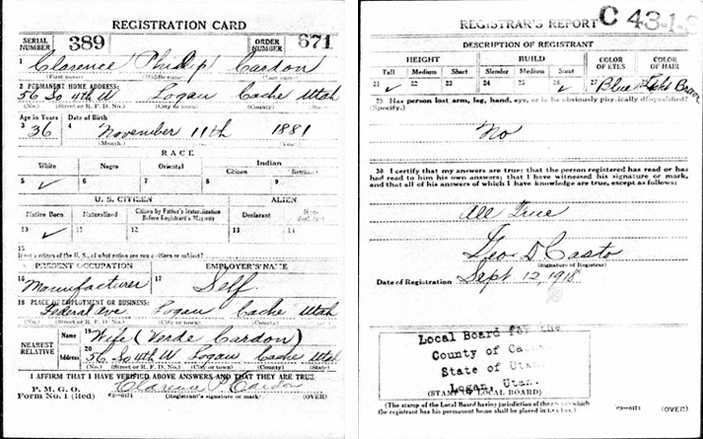 REGISTRATION CARD
SERIAL NUMBER 389 ORDER NUMBER 671
1 Clarence Philip Cardon
(First name) (Middle name) (Last name)
2 PERMANENT HOME ADDRESS:
56 So 4th W Logan Cache Utah
(No.) (Street or R. F. D. No.) (City or town) (County) (State)
Age in Years Date of Birth
3 36 4 November 11th 1881
(Month.) (Day.) (Year.)
RACE
White Negro Oriental Indian
Citizen
5 ✓ 6 7 8 9
U. S. CITIZEN ALIEN
Native Born Naturalized Citizen by Father's Naturalization Before Registrant's Majority Declarant Non-declarant
10 ✓ 11 12 13 14
15
If not a citizen of the U. S., of what nation are you a citizen or subject?
PRESENT OCCUPATION EMPLOYER'S NAME
16 Manufacturer 17 Self
18 PLACE OF EMPLOYMENT OR BUSINESS:
Federal Ave Logan Cache Utah
(No.) (Street or R. F. D. No.) (City or town) (County) (State)
NEAREST RELATIVE
Name 19 Wife (Verde Cardon)
Address 20 56 So 4th W Logan Cache Utah
(No.) (Street or R. F. D. No.) (City or town) (County) (State)
I AFFIRM THAT I HAVE VERIFIED ABOVE ANSWERS AND THAT THEY ARE TRUE
Clarence P. Cardon
P. M. G. O.
Form No. 1 (Red) (Registrant's signature or mark) (OVER)
REGISTRAR'S REPORT C 43-1-8
DESCRIPTION OF REGISTRANT
HEIGHT BUILD COLOR OF EYES COLOR OF HAIR
Tall Medium Short Slender Medium Stout
21 ✓ 22 23 24 25 26 ✓ 27 Blue 28 Light Brown
29 Has person lost arm, leg, hand, eye, or is he obviously physically disqualified?
(Specify.)
No
30 I certify that my answers are true; that the person registered has read or has
had read to him his own answers; that I have witnessed his signature or mark,
and that all of his answers of which I have knowledge are true, except as follows:
All True
Geo D Casto
(Signature of Registrar)
Date of Registration Sept 12, 1918
Local Board for the
County of Cache
State of Utah
Logan, Utah.
(STAMP OF LOCAL BOARD)
(The stamp of the Local Board having jurisdiction of the area in which
the registrant has his permanent home shall be placed in this box.)
(OVER)